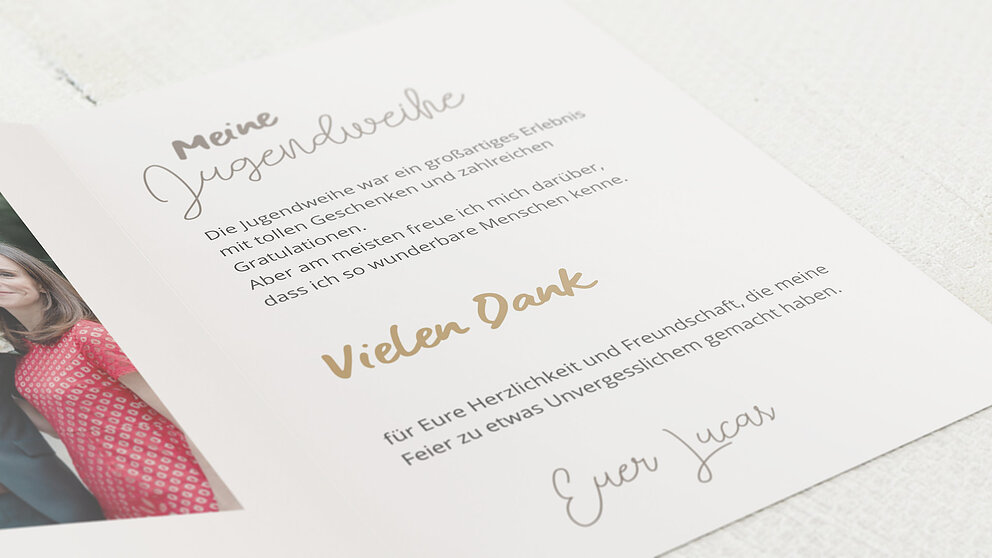 Meine
Jugendweihe
Die Jugendweihe war ein großartiges Erlebnis
mit tollen Geschenken und zahlreichen
Gratulationen.
Aber am meisten freue ich mich darüber,
dass ich so wunderbare Menschen kenne.
Vielen Dank
für Eure Herzlichkeit und Freundschaft, die meine
Feier zu etwas Unvergesslichem gemacht haben.
Euer Lucas